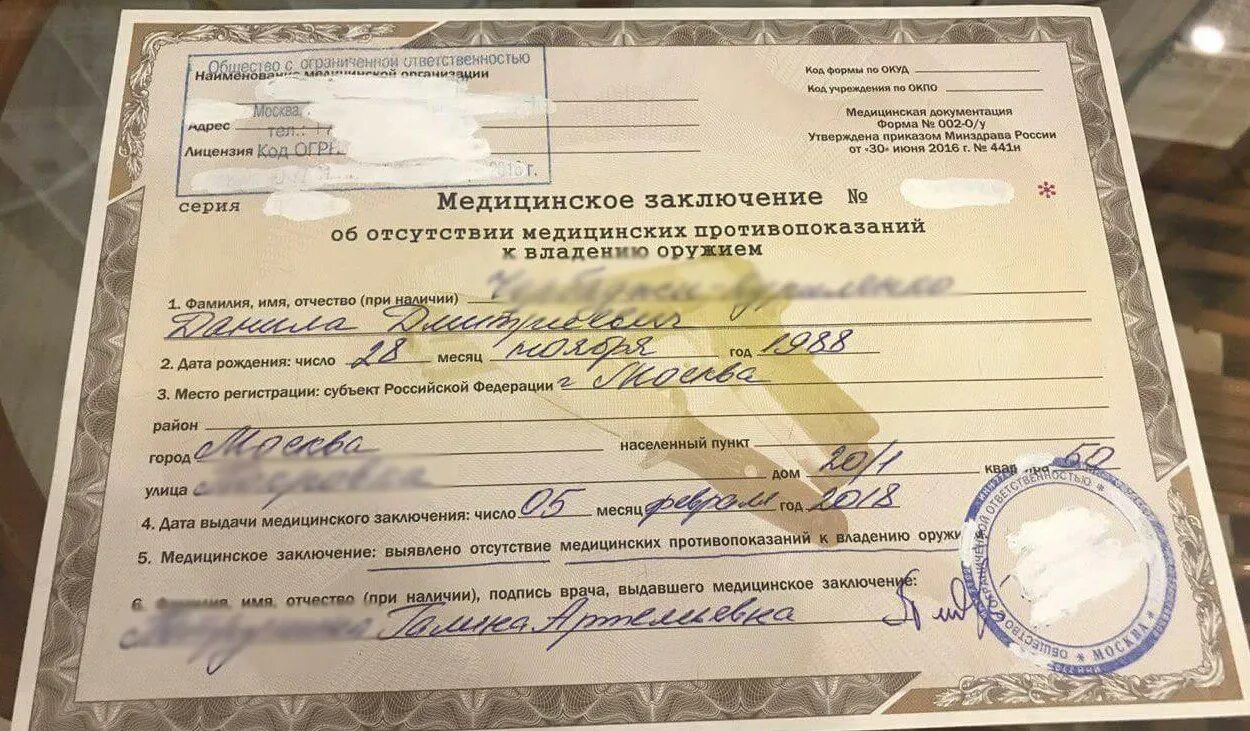 Общество с ограниченной ответственностью
Наименование медицинской организации
Москва,
Адрес
тел.:
Лицензия Код ОГРН
2016 г.
серия
Код формы по ОКУД
Код учреждения по ОКПО
Медицинская документация
Форма № 002-О/у
Утверждена приказом Минздрава России
от «30» июня 2016 г. № 441н
Медицинское заключение №
*
об отсутствии медицинских противопоказаний
к владению оружием
1. Фамилия, имя, отчество (при наличии)
Данила Дмитриевич
2. Дата рождения: число 28 месяц ноября год 1988
3. Место регистрации: субъект Российской Федерации г Москва
район
город Москва населенный пункт
улица дом 20/1 50
4. Дата выдачи медицинского заключения: число 05 месяц февраля год 2018
5. Медицинское заключение: выявлено отсутствие медицинских противопоказаний к владению оружи
6. имя, отчество (при наличии), подпись врача, выдавшего медицинское заключение:
Галина Артемьевна
ОБЩЕСТВО С ОГРАНИЧЕННОЙ ОТВЕТСТВЕННОСТЬЮ * МОСКВА *